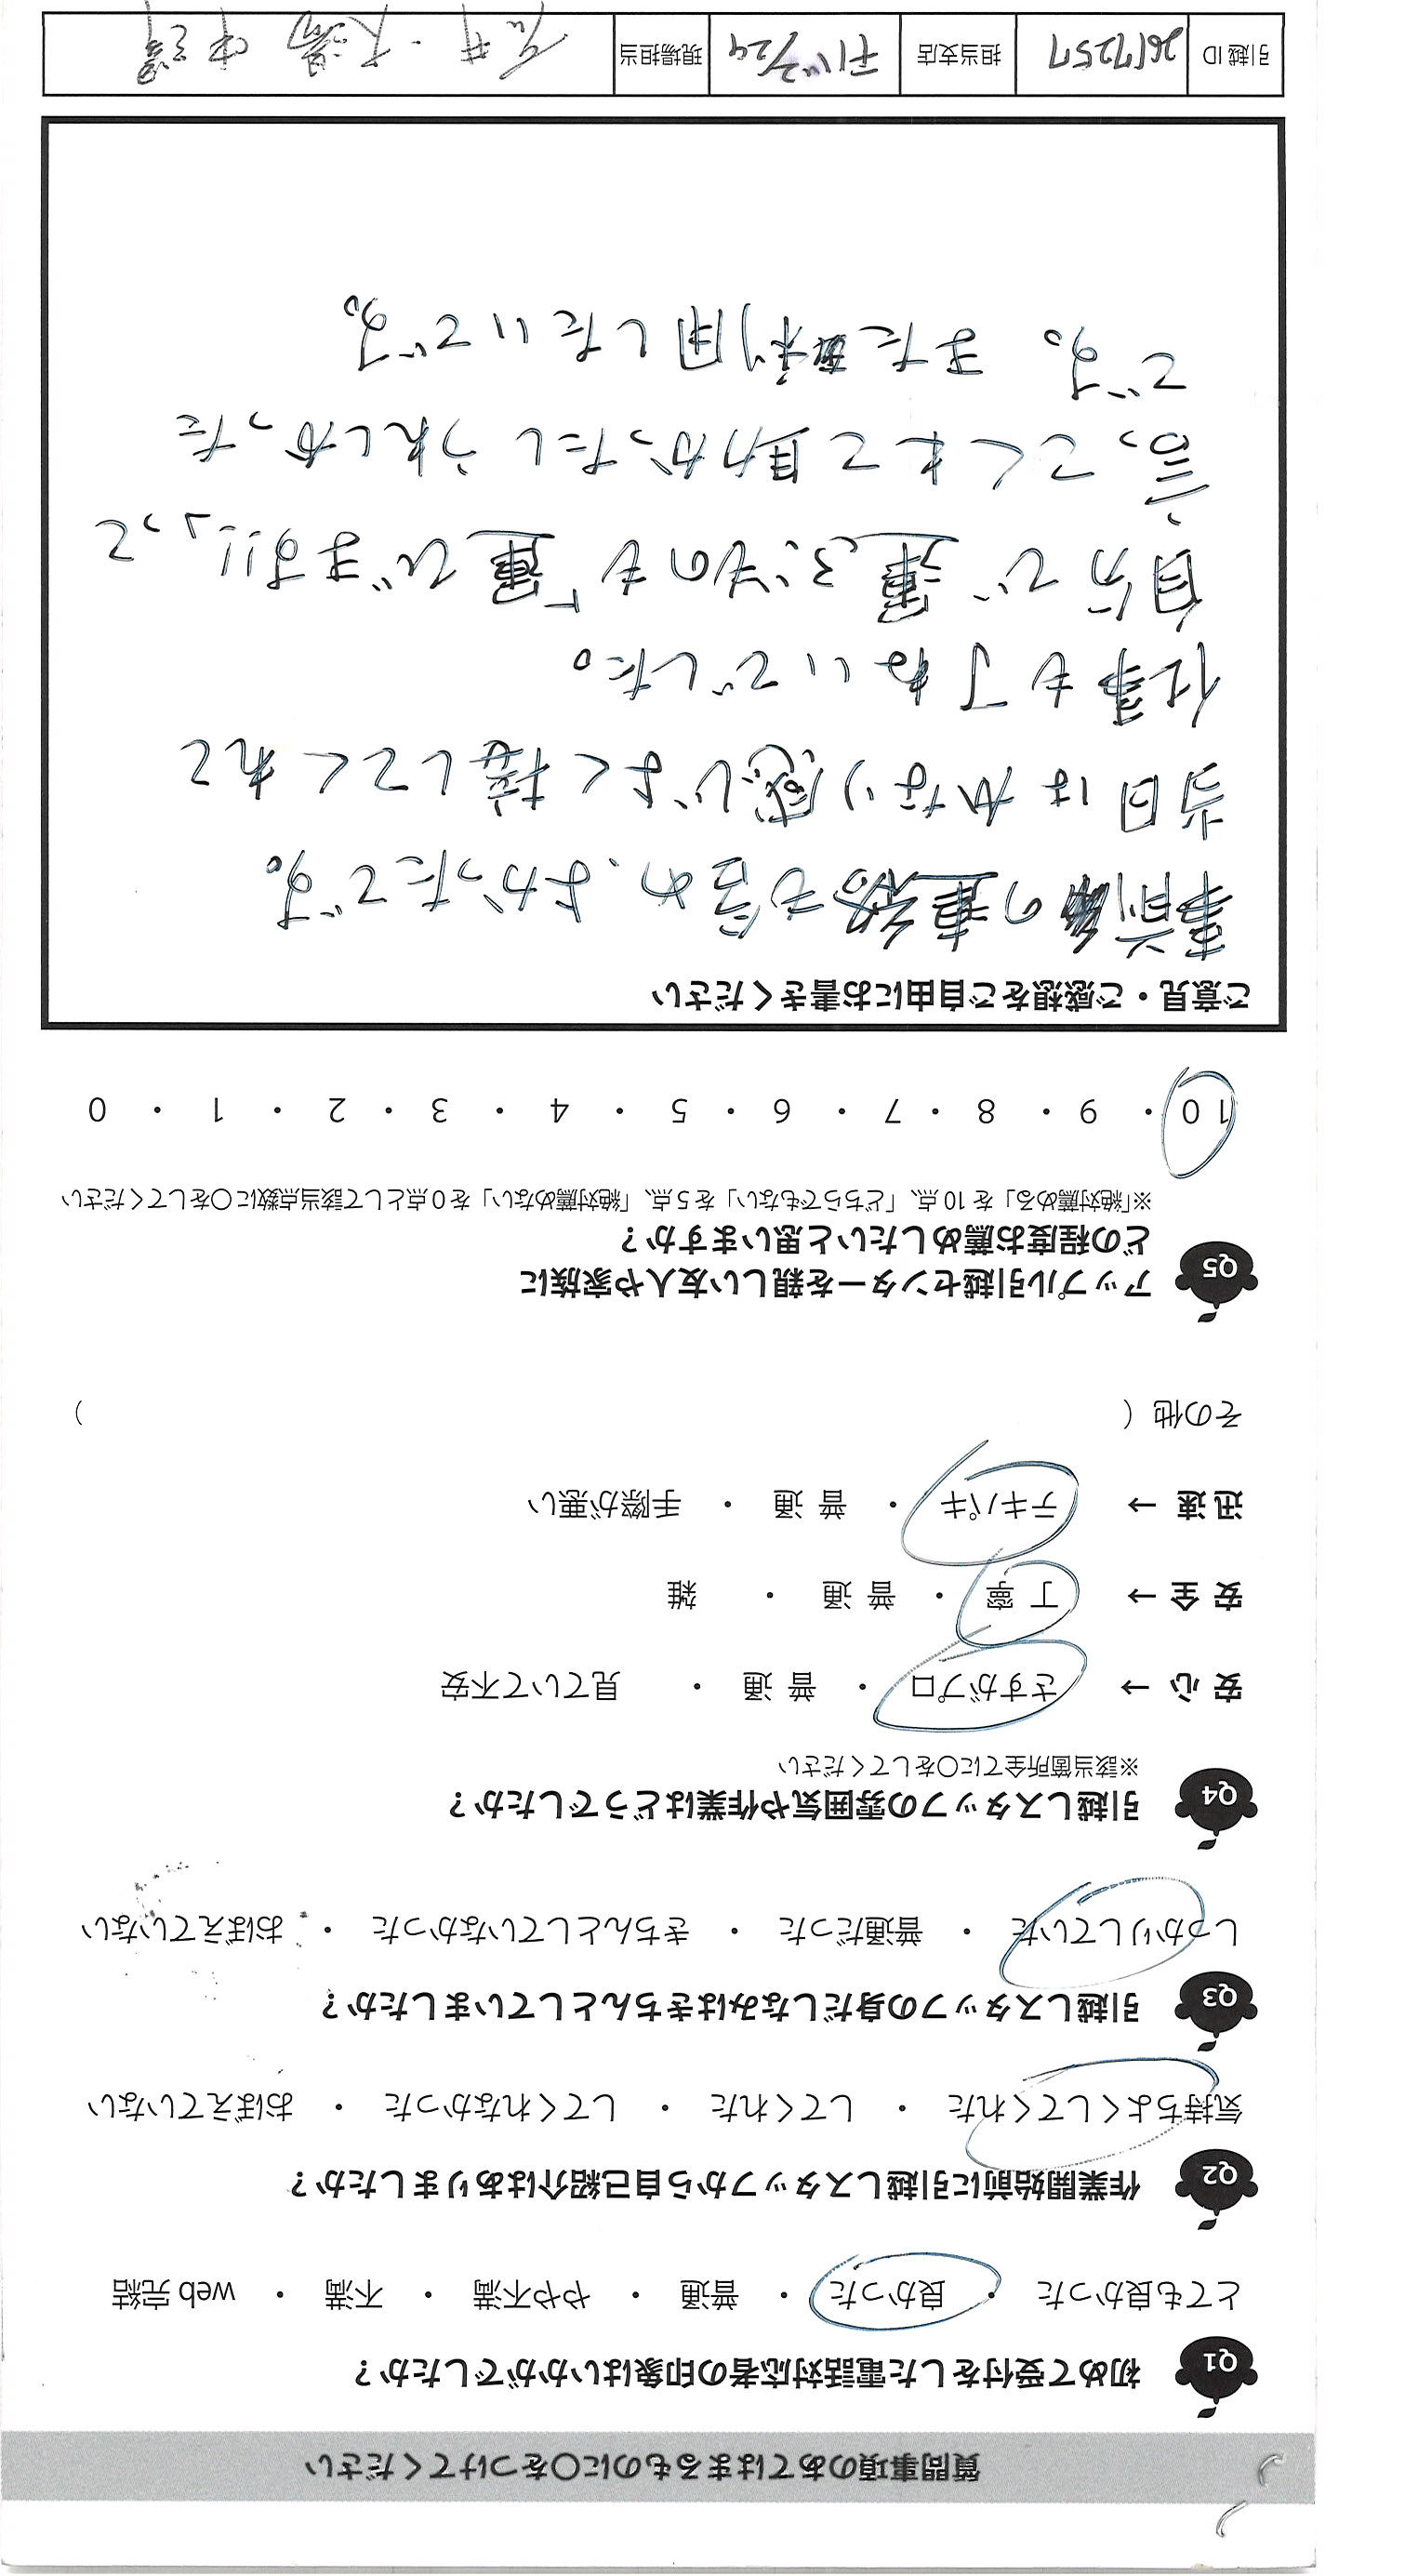 質問事項のあてはまるものに○をつけてください
Q1 初めて受付をした電話対応者の印象はいかがでしたか？
とても良かった ・ 良かった ・ 普通 ・ やや不満 ・ 不満 ・ web 完結
Q2 作業開始前に引越しスタッフから自己紹介はありましたか？
気持ちよくしてくれた ・ してくれた ・ してくれなかった ・ おぼえていない
Q3 引越しスタッフの身だしなみはきちんとしていましたか？
しっかりしていた ・ 普通だった ・ きちんとしていなかった ・ おぼえていない
Q4 引越しスタッフの雰囲気や作業はどうでしたか？
※該当箇所全てに○をしてください
安 心 → さすがプロ ・ 普 通 ・ 見ていて不安
安 全 → 丁 寧 ・ 普 通 ・ 雑
迅 速 → テキパキ ・ 普 通 ・ 手際が悪い
その他（ ）
Q5 アップル引越センターを親しい友人や家族に
どの程度お薦めしたいと思いますか？
※「絶対薦める」を 10 点、「どちらでもない」を 5 点、「絶対薦めない」を 0 点として該当点数に○をしてください
10 ・ 9 ・ 8 ・ 7 ・ 6 ・ 5 ・ 4 ・ 3 ・ 2 ・ 1 ・ 0
ご意見・ご感想をご自由にお書きください
事前の連絡も含め、よかったです。
当日はかなり感じよく接してくれて
仕事も丁ねいでした。
自分で運ぶものも「運びます!!」って
言ってくれて助かったしうれしかった
です。 また利用したいです。
引越 ID 2617257 担当支店 現場担当